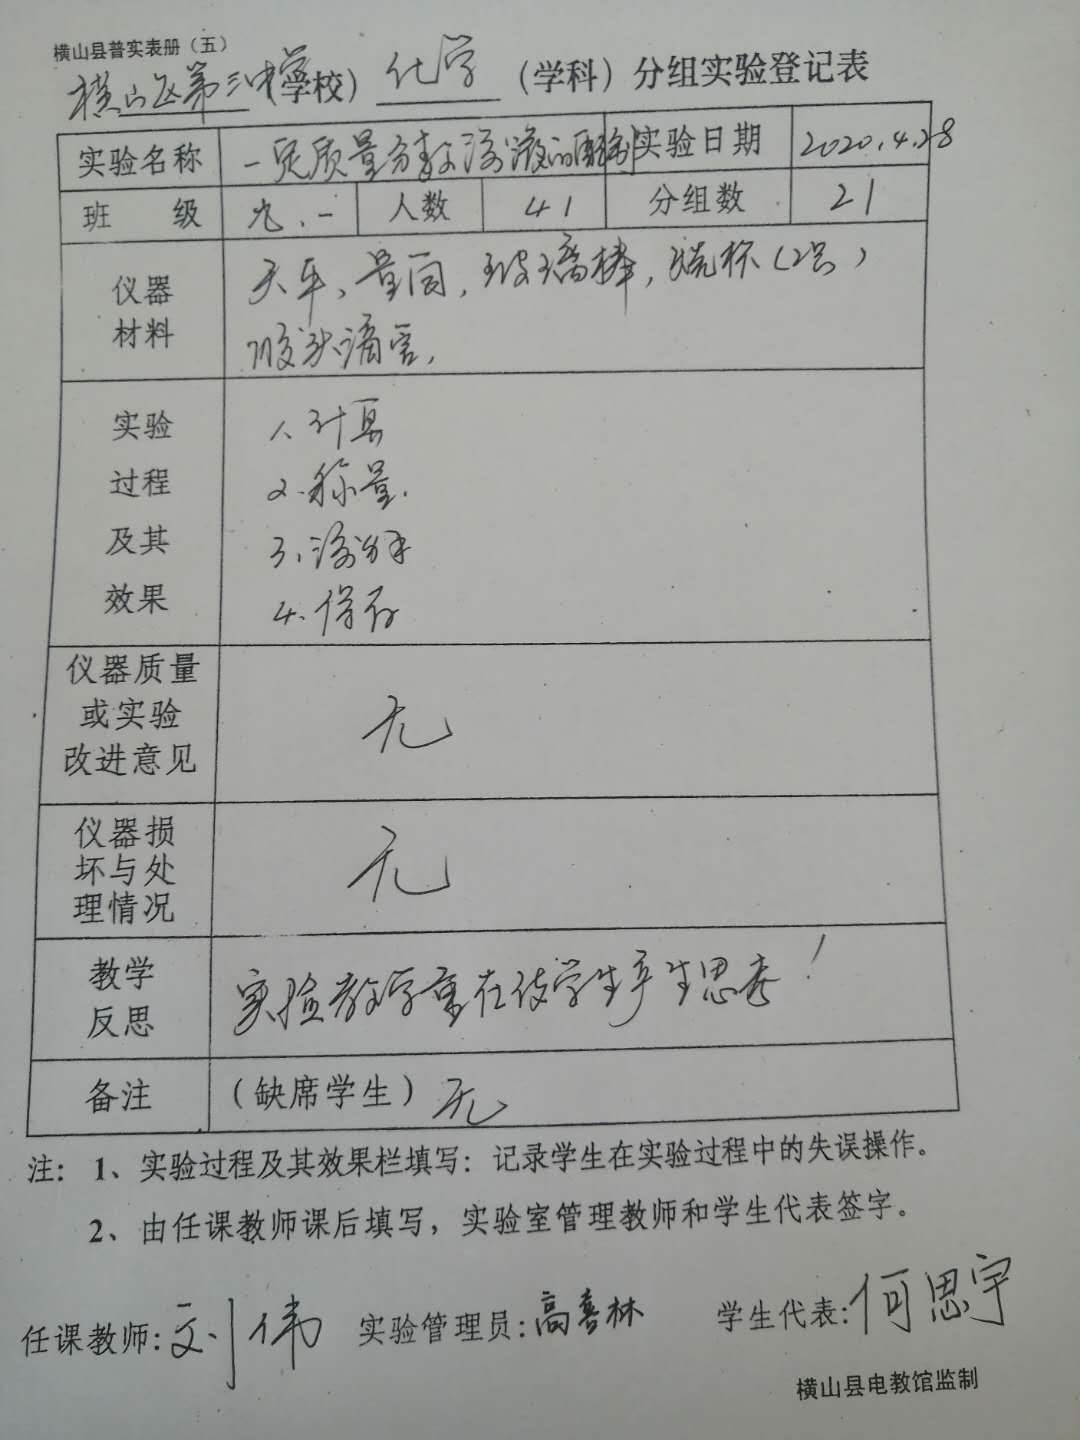 横山县普实表册（五）
横山区第三中学（学校） 化学 （学科）分组实验登记表
实验名称 一定质量分数溶液的配制 实验日期 2020.4.28
班 级 九、一 人数 41 分组数 21
仪器 天平、量筒，玻璃棒，烧杯（2只）
材料 胶头滴管，
实验 1、计算
过程 2、称量.
及其 3、溶解
效果 4、保存
仪器质量
或实验 无
改进意见
仪器损
坏与处 无
理情况
教学 实验教学重在使学生产生思考！
反思
备注 （缺席学生）无
注：1、实验过程及其效果栏填写：记录学生在实验过程中的失误操作。
2、由任课教师课后填写，实验室管理教师和学生代表签字。
任课教师:刘伟 实验管理员:高喜林 学生代表:何思宇
横山县电教馆监制